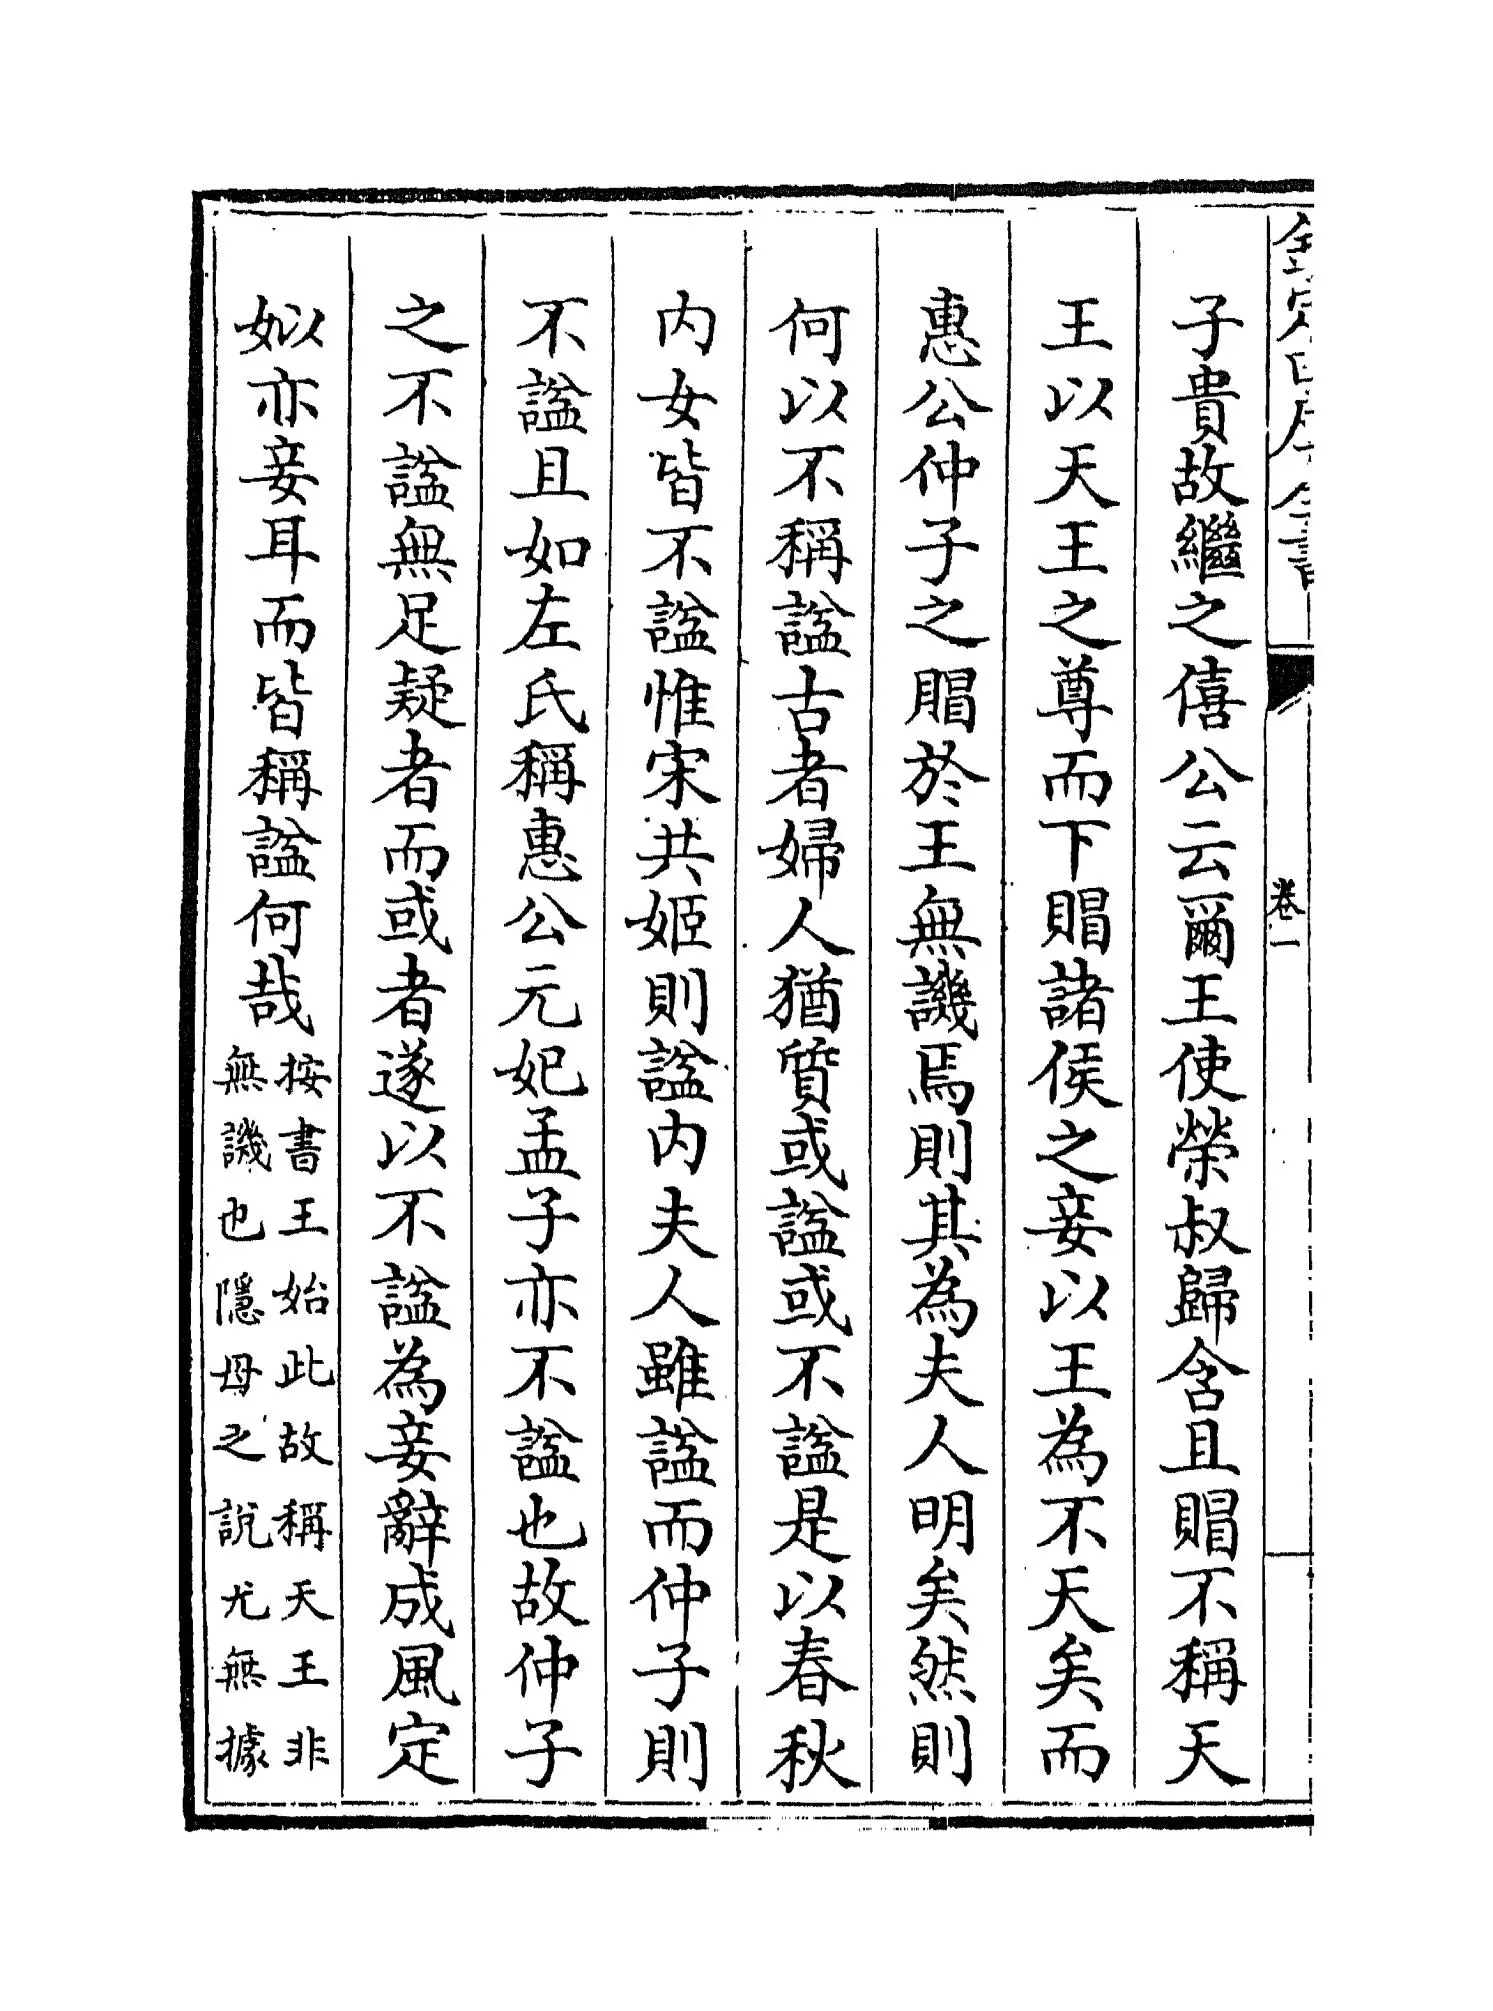 欽定四庫全書
卷一
子貴故繼之僖公云爾王使榮叔歸含且賵不稱天
王以天王之尊而下賵諸侯之妾以王為不天矣而
惠公仲子之賵於王無譏焉則其為夫人明矣然則
何以不稱諡古者婦人猶質或諡或不諡是以春秋
内女皆不諡惟宋共姬則諡内夫人雖諡而仲子則
不諡且如左氏稱惠公元妃孟子亦不諡也故仲子
之不諡無足疑者而或者遂以不諡為妾辭成風定
姒亦妾耳而皆稱諡何哉
按書王始此故稱天王非
無譏也隱母之說尤無據